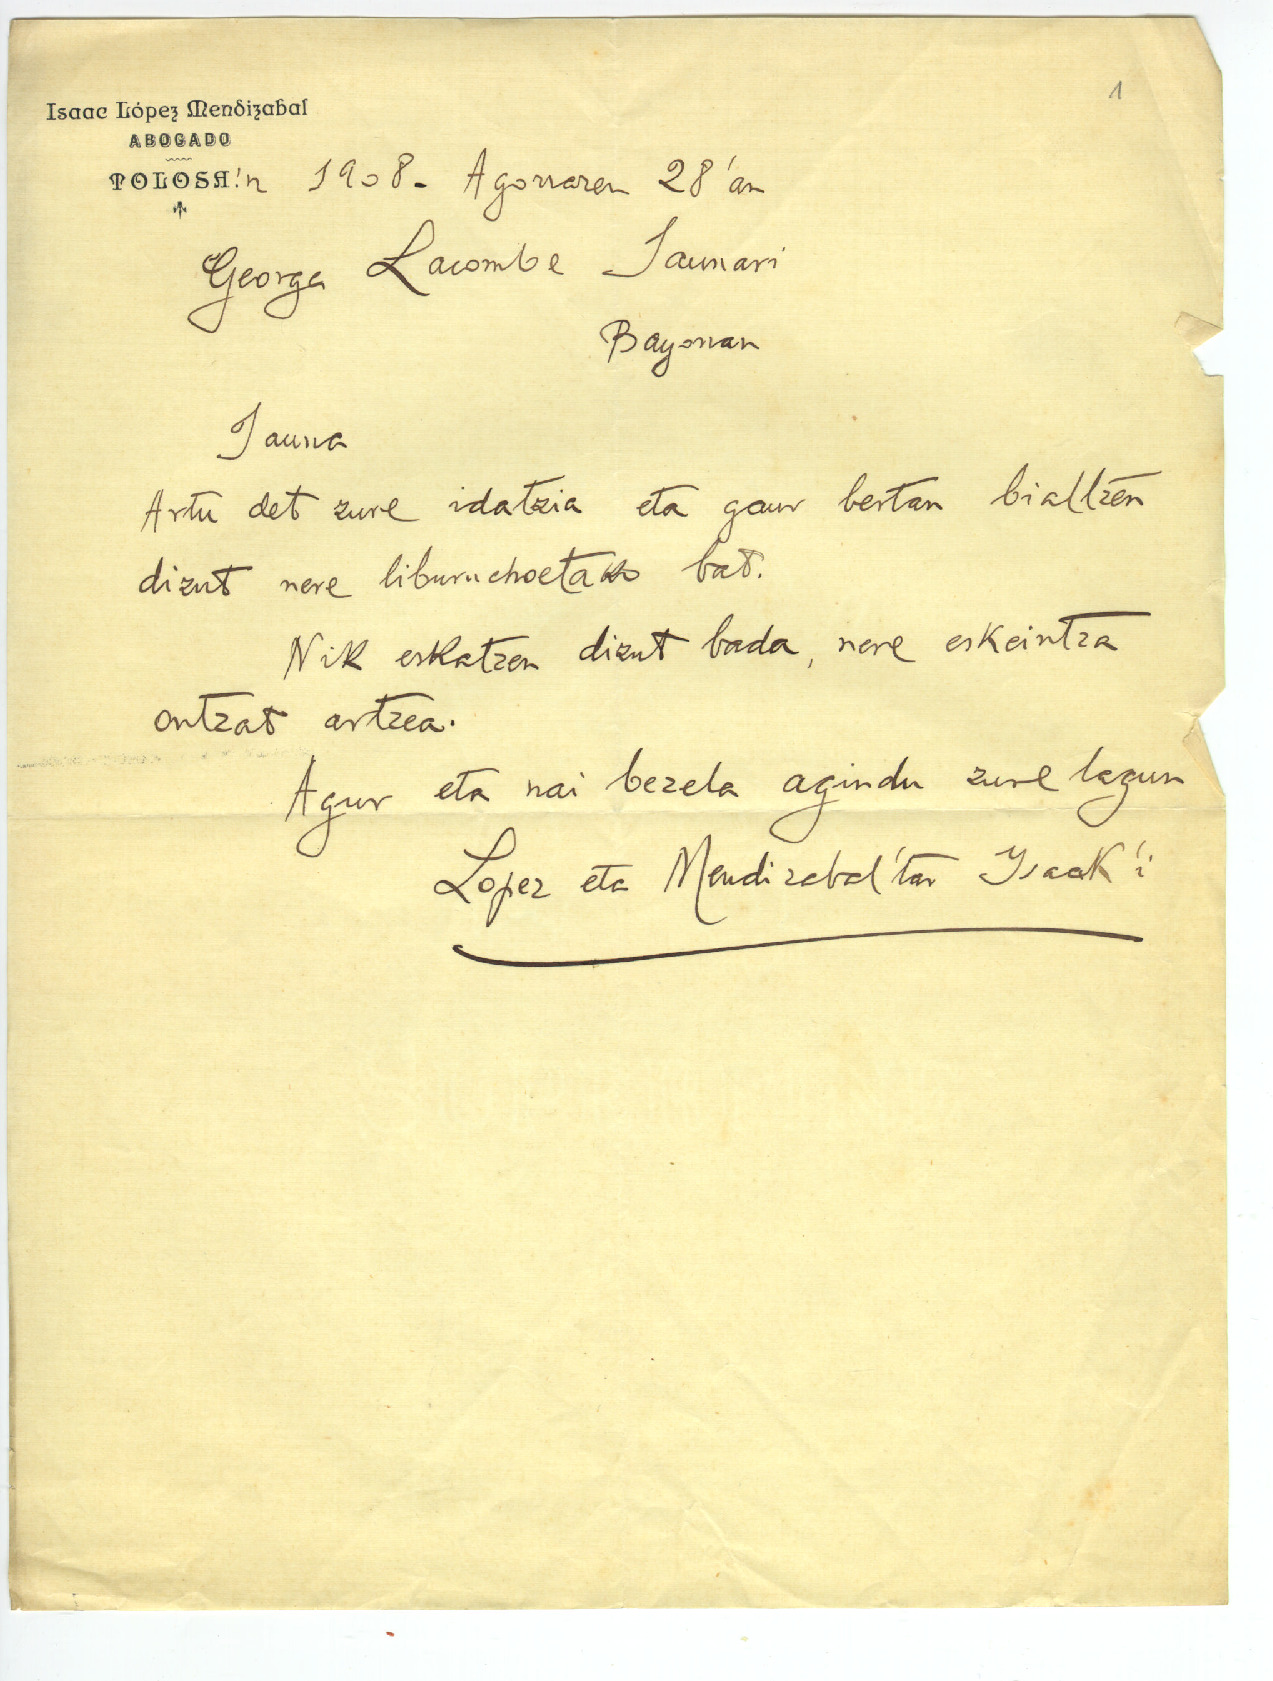 1
Isaac López Mendizabal
ABOGADO
TOLOSA'n 1908. Agorraren 28'an
George Lacombe Jaunari
Bayonan
Jauna
Artu det zure idatzia eta gaur bertan bialtzen
dizut nere liburuchoetako bat.
Nik eskatzen dizut bada, nere eskeintza
ontzat artzea.
Agur eta nai bezela agindu zure lagun
Lopez eta Mendizabal'tar Ysaak'i